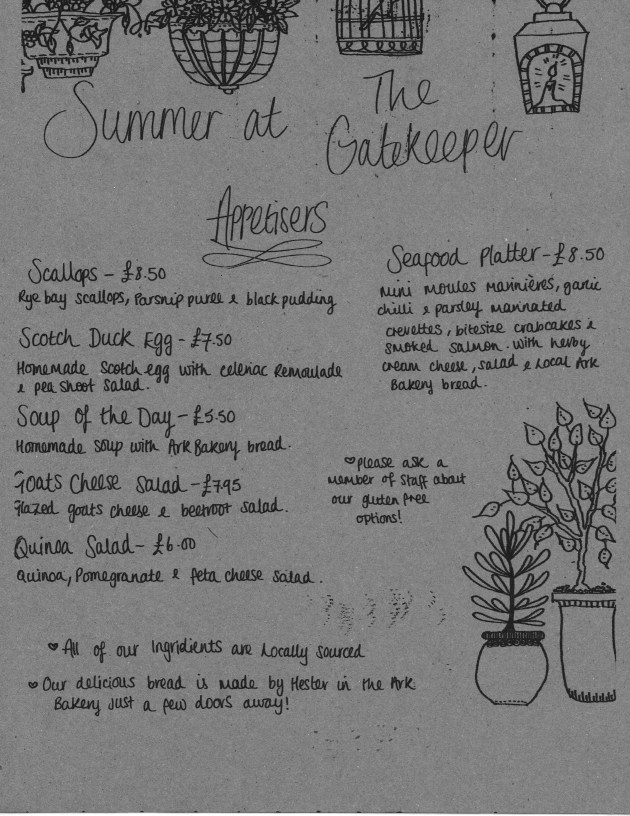 Summer at The Gatekeeper
Appetisers
Scallops - £8.50
Rye bay scallops, Parsnip puree & black pudding
Scotch Duck Egg - £7.50
Homemade Scotch egg with celeriac Remoulade
& pea shoot salad.
Soup of the Day - £5.50
Homemade soup with Ark Bakery bread.
Goats Cheese Salad - £7.95
Glazed goats cheese & beetroot salad.
Quinoa Salad - £6.00
Quinoa, Pomegranate & feta cheese salad.
Seafood Platter - £8.50
Mini Moules Marinières, garlic
chilli & parsley marinated
crevettes, bitesize crabcakes &
smoked salmon. with herby
cream cheese, salad & local Ark
Bakery bread.
please ask a
member of staff about
our gluten free
options!
All of our Ingridients are locally sourced
Our delicious bread is made by Hester in the Ark
Bakery Just a few doors away!